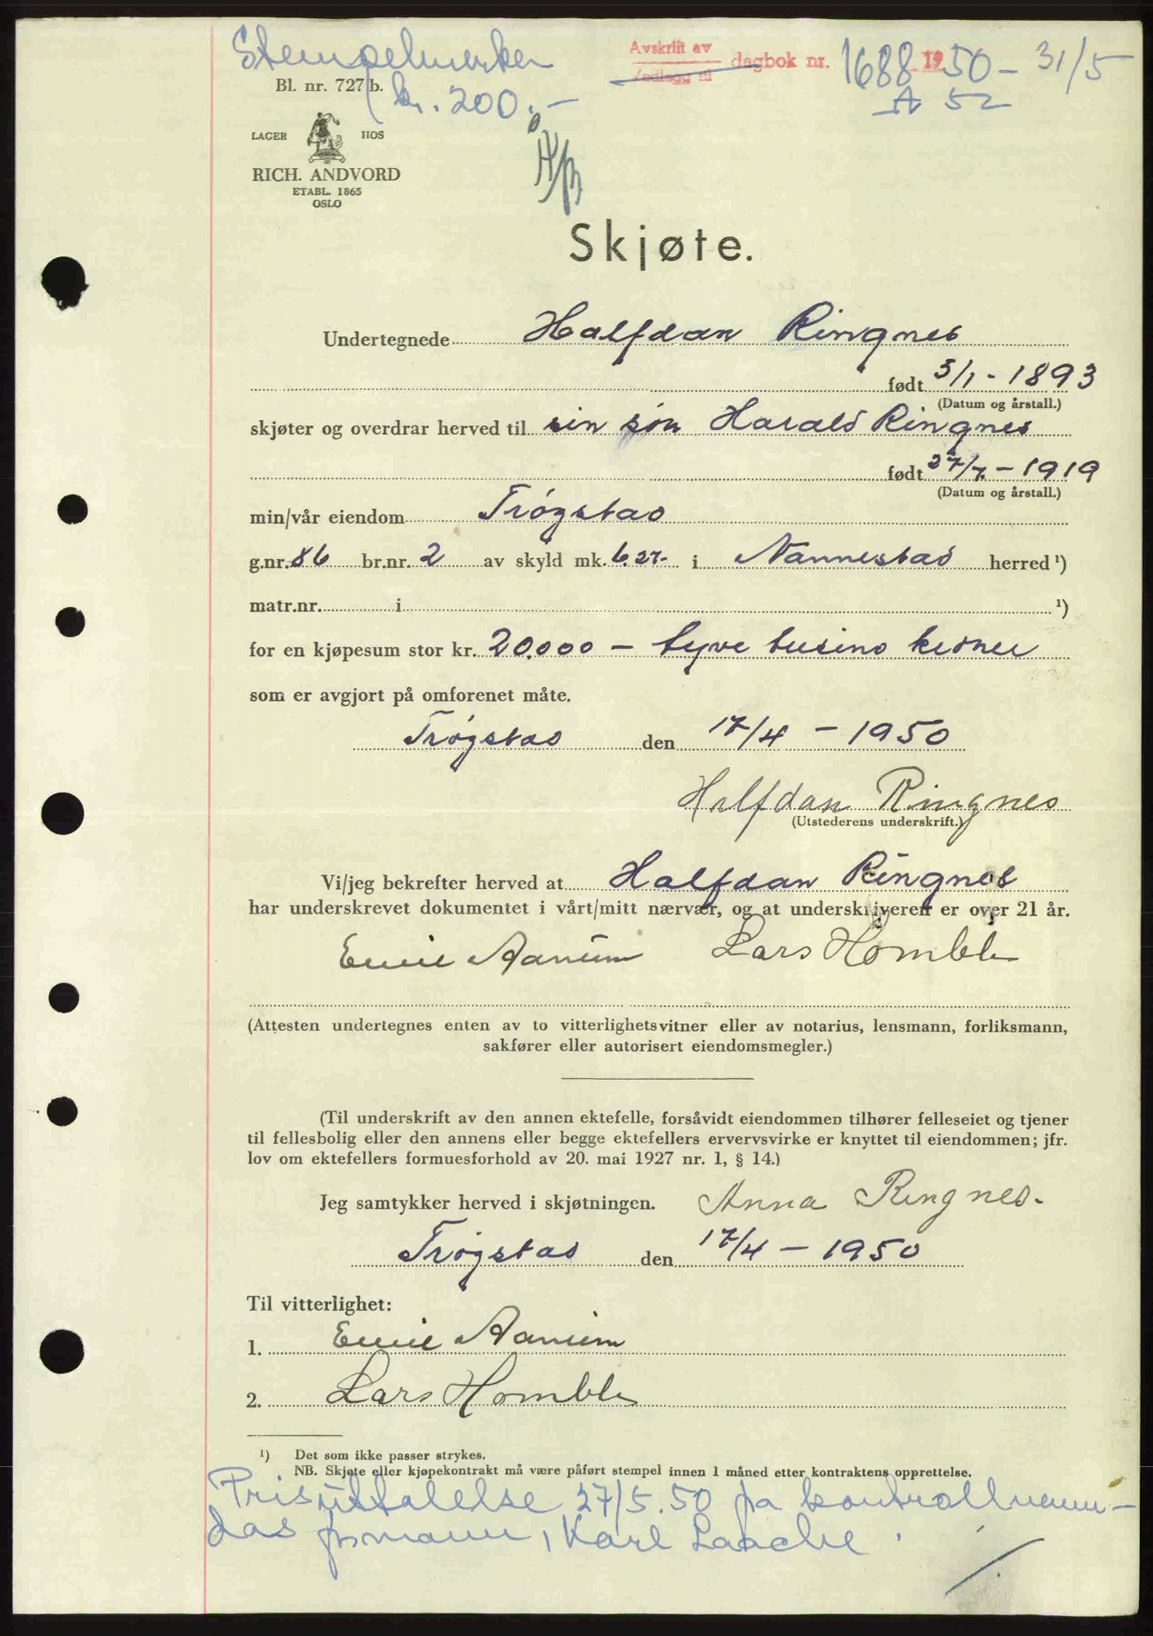 Stempelmerker
kr. 200.-
Avskrift av
dagbok nr. 1688 1950 - 31/5
A 52
Bl. nr. 727 b.
LAGER HOS
RICH. ANDVORD
ETABL. 1865
OSLO
Skjøte.
Undertegnede Halfdan Ringnes
født 3/1 - 1893
(Datum og årstall.)
skjøter og overdrar herved til sin søn Harald Ringnes
født 27/7 - 1919
(Datum og årstall.)
min/vår eiendom Trøgstad
g.nr. 86 br.nr. 2 av skyld mk. 6.27- i Nannestad herred ¹)
matr.nr. i ¹)
for en kjøpesum stor kr. 20.000 - tyve tusind kroner
som er avgjort på omforenet måte.
Trøgstad den 17/4 - 1950
Halfdan Ringnes
(Utstederens underskrift.)
Vi/jeg bekrefter herved at Halfdan Ringnes
har underskrevet dokumentet i vårt/mitt nærvær, og at underskriveren er over 21 år.
Lars Homble
(Attesten undertegnes enten av to vitterlighetsvitner eller av notarius, lensmann, forliksmann,
sakfører eller autorisert eiendomsmegler.)
(Til underskrift av den annen ektefelle, forsåvidt eiendommen tilhører felleseiet og tjener
til fellesbolig eller den annens eller begge ektefellers ervervsvirke er knyttet til eiendommen; jfr.
lov om ektefellers formuesforhold av 20. mai 1927 nr. 1, § 14.)
Jeg samtykker herved i skjøtningen. Anna Ringnes.
Trøgstad den 17/4 - 1950
Til vitterlighet:
1.
2. Lars Homble
¹) Det som ikke passer strykes.
NB. Skjøte eller kjøpekontrakt må være påført stempel innen 1 måned etter kontraktens opprettelse.
Prisuttalelse 27/5.50 fra kontrollnemn-
das formann, Karl Laache.